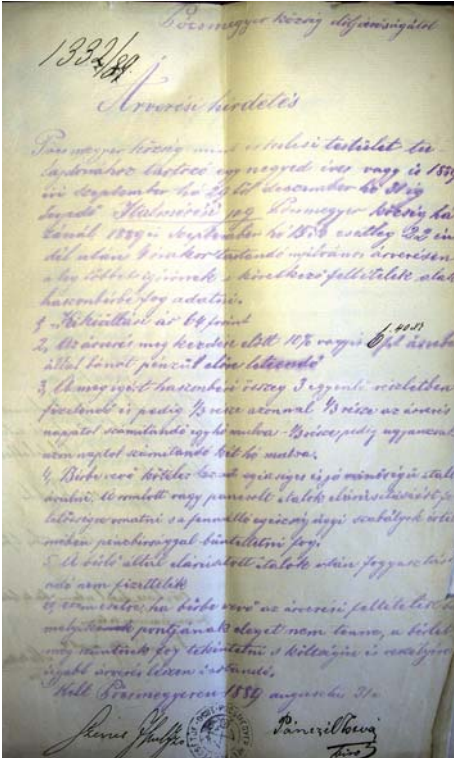 Pócsmegyer község elöljáróságától
1332/89.
Árverési hirdetés
Pócsmegyer község mint erkölcsi testület tu-
lajdonához tartozó egy negyed éves vagy is 1889
évi szeptember hó 29től deczember hó 31ig
terjedő Italmérési jog Pócsmegyer község há
zánál 1889 évi szeptember hó 15 esetleg 22 én
dél után 4 órakor tartandó nyilvános árverésen
a leg többet igérőnek a következő feltételek alatt
haszonbérbe fog adatni.
1, Kikiáltási ár 64 forint
2, Az árverés meg kezdése előtt 10% vagyis 6 frt 40 kr
által bánat pénzül előre leteendő
3, A meg igért haszonbéri összeg 3 egyenlő részletben
fizetendő is pedig 1/3 része azonnal 1/3 része az árverés
napjától számítandó egy hó mulva 1/3 része pedig ugyancsak
azon naptól számítandó két hó mulva.
4, Bérbe vevő köteles egésséges és jó minőségű italt
árulni, A romlott vagy pancsolt italok
s a fennálló egésség ügyi szabályok értel
mében pénzbirsággal büntettetni fog.
5, A bérlő által elárusított italok után fogyasztási
adó nem fizettetik
6, azon esetre, ha bérbe vevő az árverési feltételek
pontjának eleget nem tenne, a bérlet
meg szüntnek fog tekintetni s költségére és veszélyére
ujabb árverés leszen tartandó.
Kelt Pócsmegyeren 1889 augusztus 31n